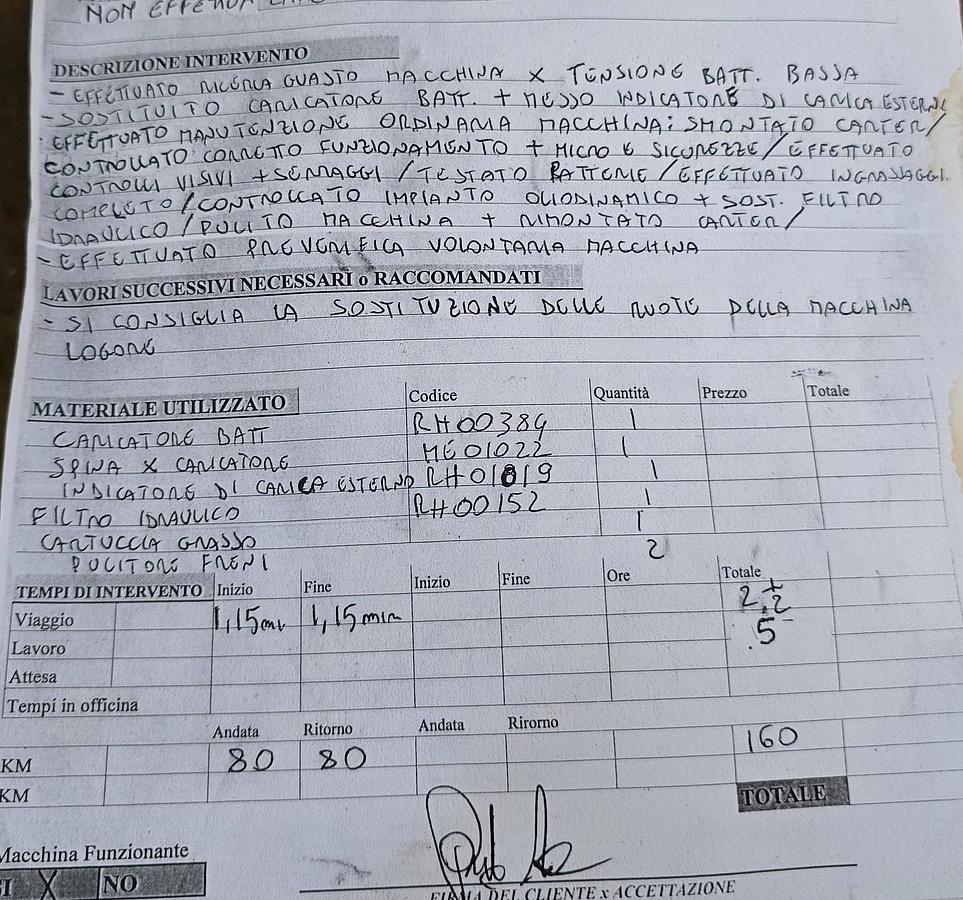 NON EFFETTUA
DESCRIZIONE INTERVENTO
- EFFETTUATO RICERCA GUASTO MACCHINA X TENSIONE BATT. BASSA
- SOSTITUITO CARICATORE BATT. + MESSO INDICATORE DI CARICA ESTERNO
- EFFETTUATO MANUTENZIONE ORDINARIA MACCHINA: SMONTATO CARTER/
CONTROLLATO CORRETTO FUNZIONAMENTO + MICRO E SICUREZZE/EFFETTUATO
CONTROLLI VISIVI + SERRAGGI/TESTATO BATTERIE/EFFETTUATO INGRASSAGGI
COMPLETO/CONTROLLATO IMPIANTO OLIODINAMICO + SOST. FILTRO
IDRAULICO/PULITO MACCHINA + RIMONTATO CARTER/
- EFFETTUATO PREVERIFICA VOLONTARIA MACCHINA
LAVORI SUCCESSIVI NECESSARI o RACCOMANDATI
- SI CONSIGLIA LA SOSTITUZIONE DELLE RUOTE DELLA MACCHINA
LOGORE
MATERIALE UTILIZZATO Codice Quantità Prezzo Totale
CARICATORE BATT RH00384 1
SPINA X CARICATORE ME01022 1
INDICATORE DI CARICA ESTERNO RH01819 1
FILTRO IDRAULICO RH00152 1
CARTUCCIA GRASSO 1
PULITORE FRENI 2
TEMPI DI INTERVENTO Inizio Fine Inizio Fine Ore Totale
Viaggio 1,15 1,15min 2,2
Lavoro 5
Attesa
Tempi in officina
Andata Ritorno Andata Rirorno
KM 80 80 160
KM TOTALE
Macchina Funzionante
SI X NO
FIRMA DEL CLIENTE x ACCETTAZIONE